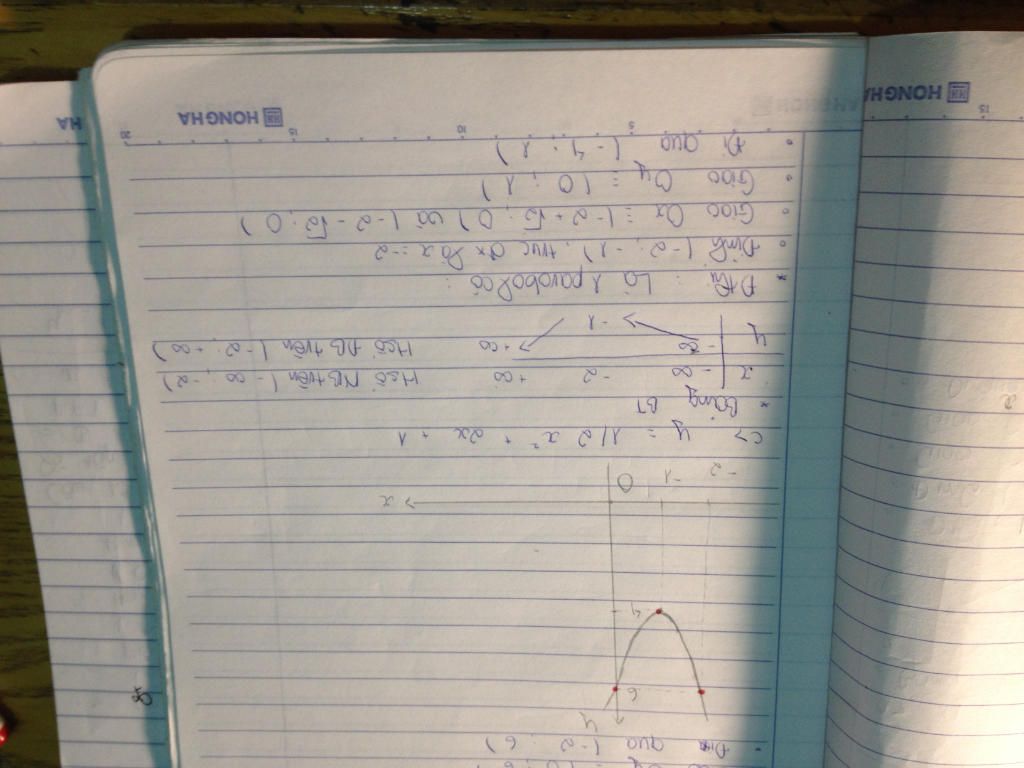 • Đi qua (-2; 6)
y
6
4
x
-2 -1 O
c> y = 1/2 x² + 2x + 1
* Bảng BT
x -∞ -2 +∞ Hsố NB trên (-∞; -2)
y -∞ +∞ Hsố ĐB trên (-2; +∞)
-1
* Đthị : Là 1 parabol có :
• Đỉnh (-2; -1), trục đx là x = -2
• Giao Ox ≡ (-2+√2; 0) và (-2-√2; 0)
• Giao Oy ≡ (0; 1)
• Đi qua (-4; 1)
5 10 15 20
HONG HA
15
HONG HA
HA